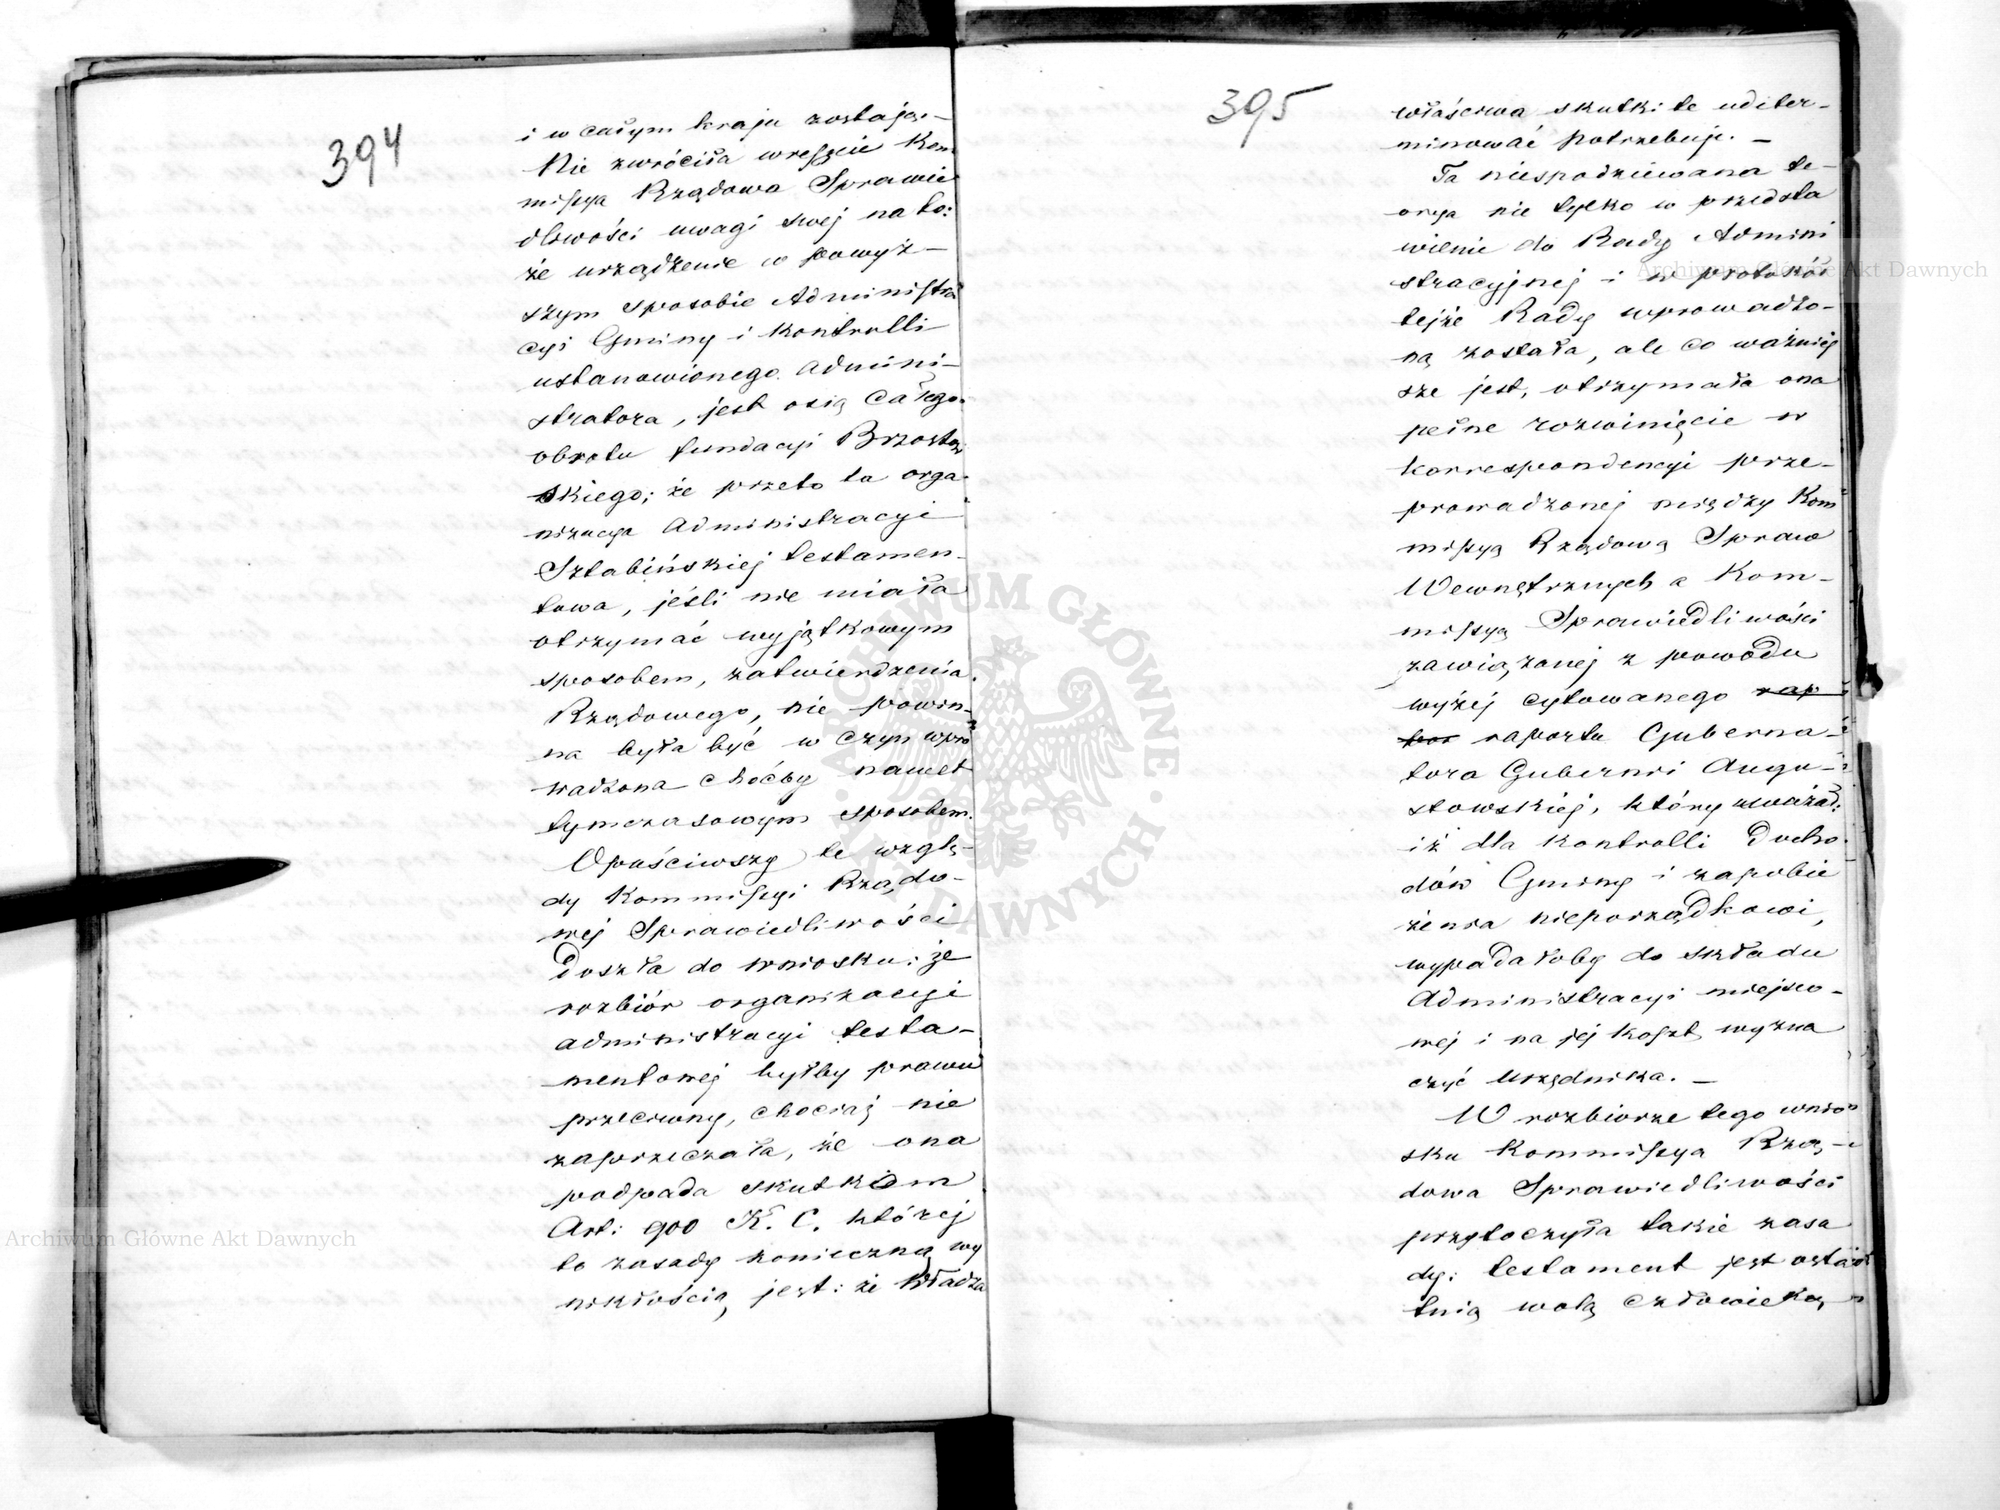 394
i w całym kraju zostając. —
Nie zwróciła wreszcie Kom
missya Rządowa Sprawie
dliwości uwagi swej na to:
że urządzenie w powyż —
szym sposobie Administra
cyi Gminy i kontrolli —
ustanowionego Admini —
stratora, jest osią całego
obrotu fundacyi Brzostow
skiego; że przeto ta orga-
nizacya Administracyi
Sztabińskiej testamen-
towa, jeśli nie miała
otrzymać wyjątkowym
sposobem, zatwierdzenia
Rządowego, nie powin-
na była być w czyn wpro
wadzona choćby nawet
tymczasowym sposobem.
Opuściwszy te wzglę-
dy Kommissyi Rządo-
wej Sprawiedliwości
doszła do wniosku: że
rozbiór organizacyi
administracyi testa-
mentowej byłby prawu
przeciwny, chociaż nie
zaprzeczała, że ona
podpada skutkom
Art: 900 K. C. której
to zasady konieczną wy
nikłością, jest: że Władza
395
właściwa skutki te udeter-
minować potrzebuje. —
Ta niespodziewana te-
orya nie tylko w przedsta
wienie do Rady Admini
stracyjnej i w protokół
tejże Rady wprowadzo-
ną została, ale co ważniej
sze jest, otrzymała ona
pełne rozwinięcie w
korrespondencyi prze-
prowadzonej między Kom
missyą Rządową Spraw
Wewnętrznych a Kom-
missyą Sprawiedliwości
zawiązanej z powodu
wyżej cytowanego rap
por raportu Guberna-
tora Gubernii Augu-
stowskiej, który uważał:
iż dla kontrolli docho-
dów Gminy i zapobie
żenia nieporządkowi,
wypadałoby do składu
Administracyi miejsco-
wej i na jej koszt, wyzna
czyć Urzędnika. —
W rozbiorze tego wnio
sku Kommissya Rzą-
dowa Sprawiedliwości
przytoczyła takie zasa
dy: testament jest osta
tnią wolą człowieka,
ARCHIWUM GŁÓWNE AKT DAWNYCH
Archiwum Główne Akt Dawnych
Archiwum Główne Akt Dawnych